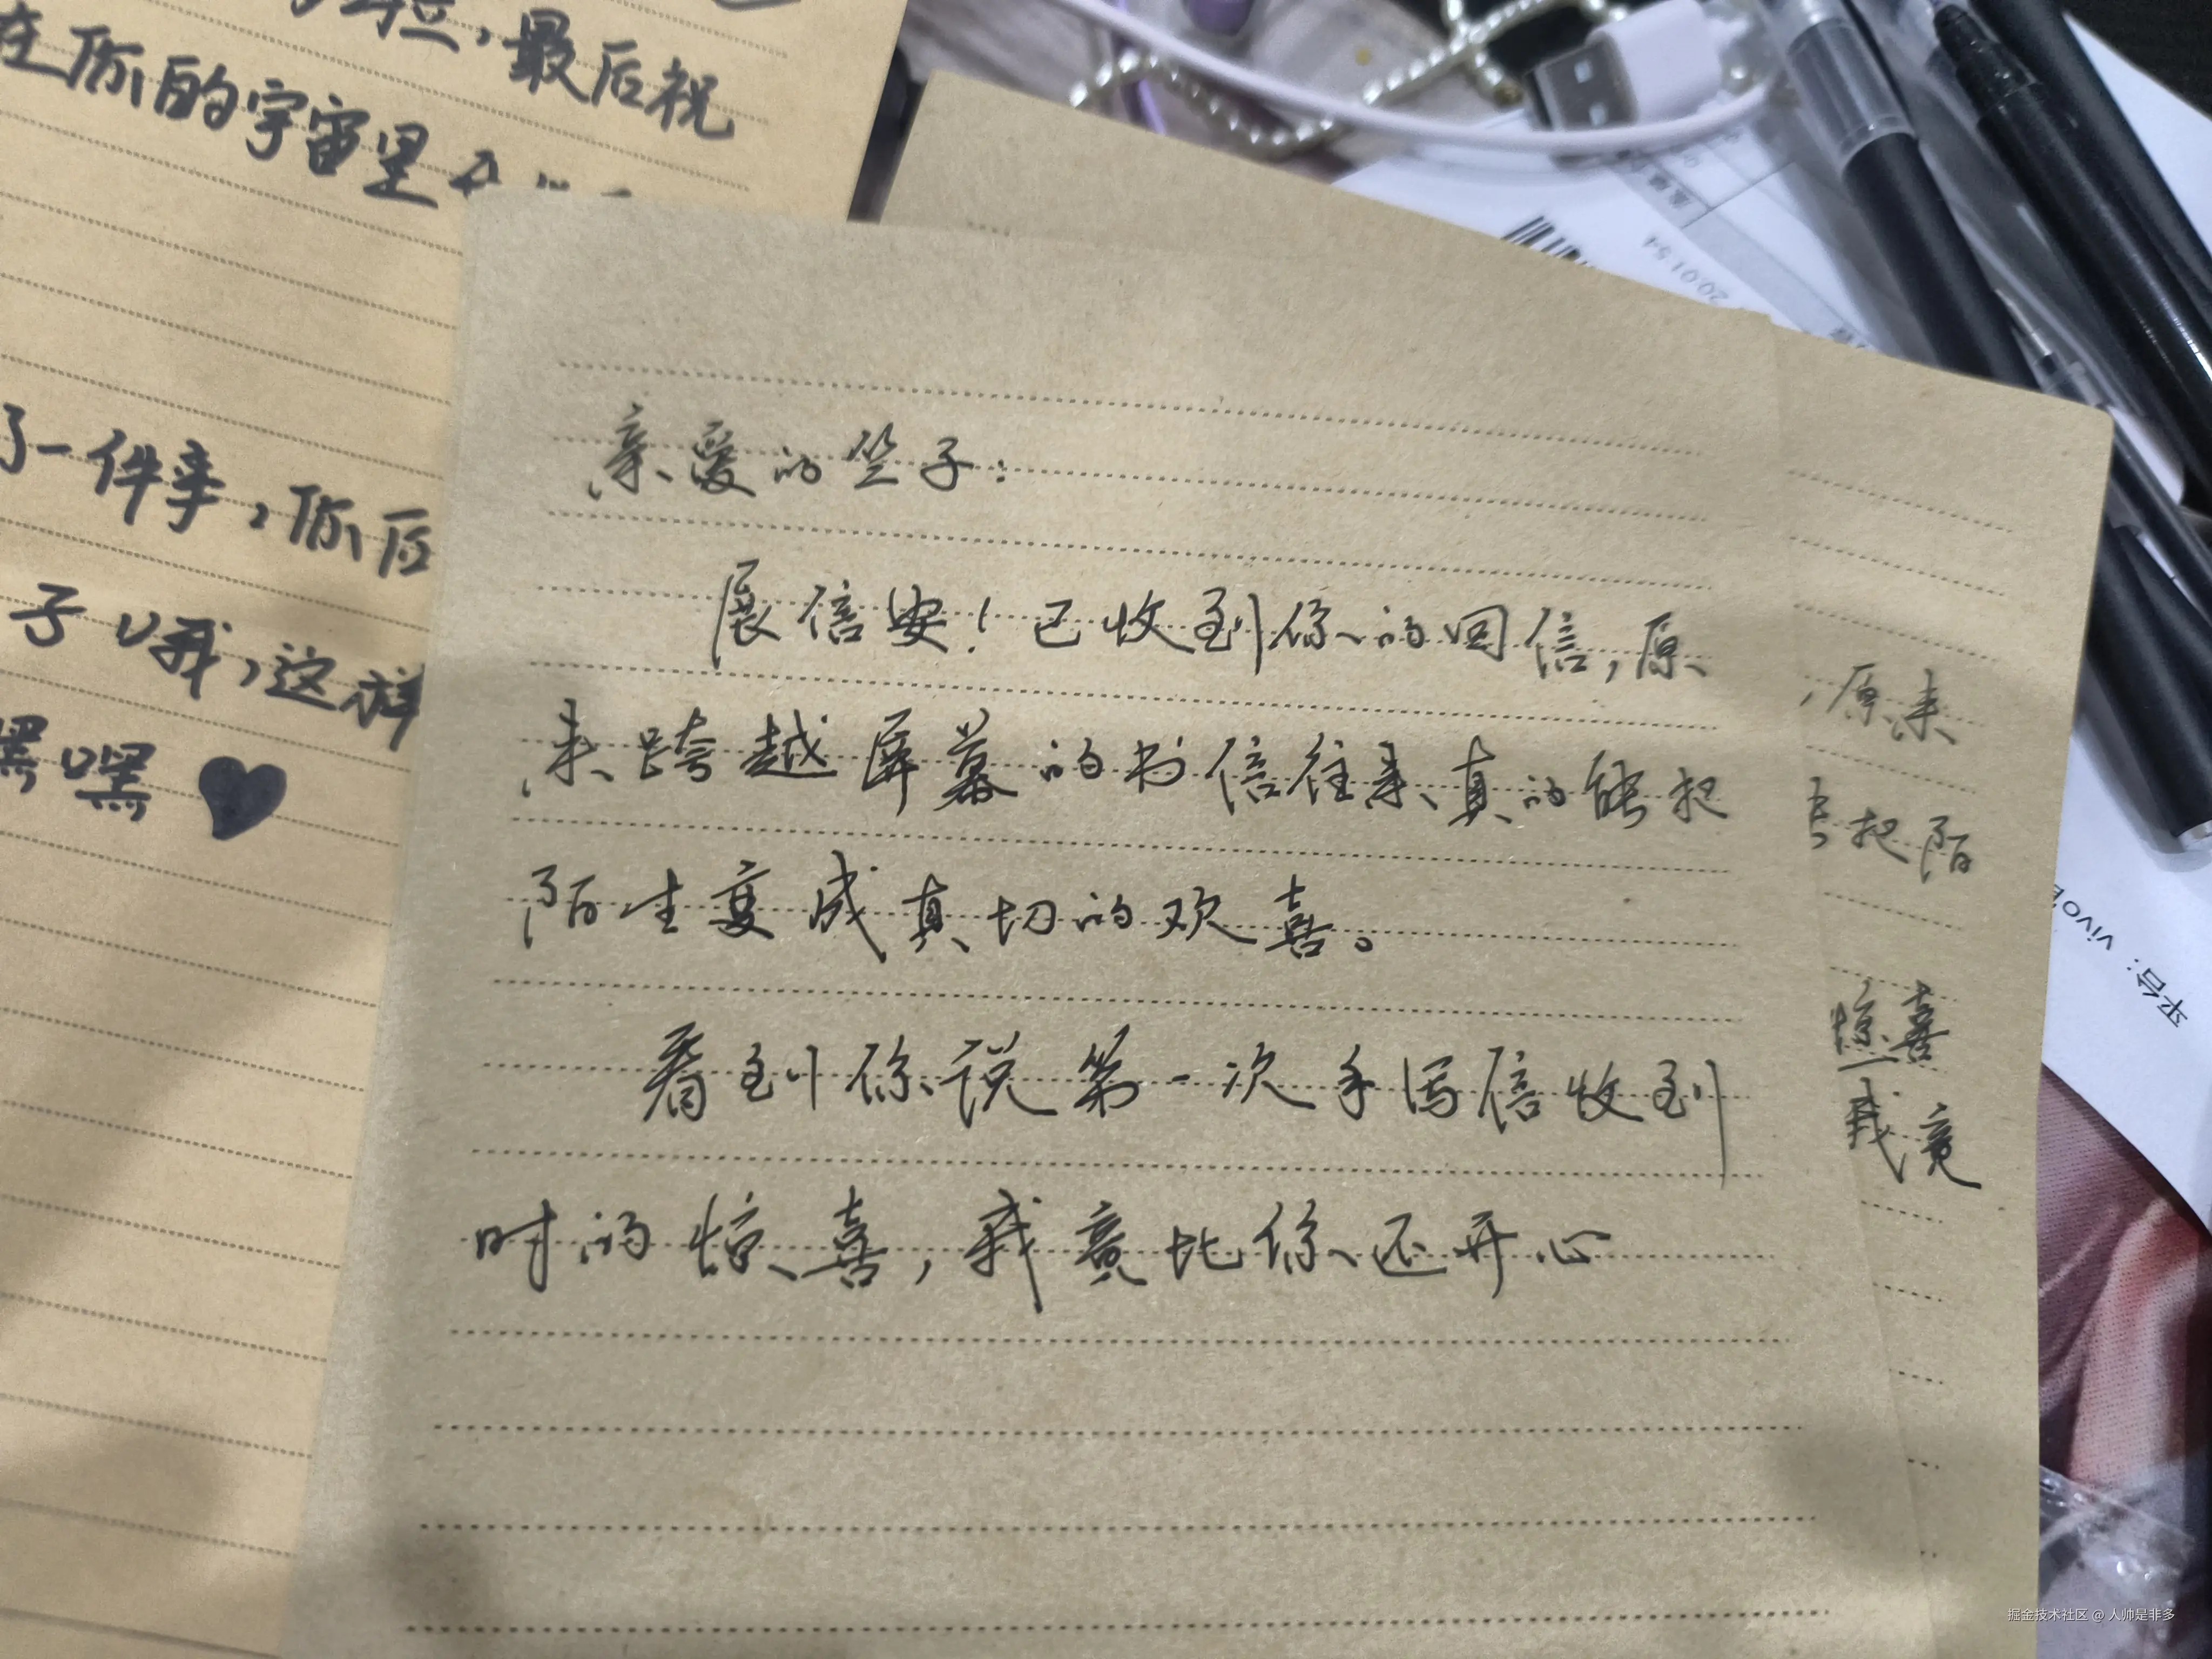 最后祝
在你的宇宙里
了一件事，你后
子哦，这样
嘿嘿
亲爱的竺子：
展信安！已收到你的回信，原
来跨越屏幕的书信往来真的能把
陌生变成真切的欢喜。
看到你说第一次手写信收到
时的惊喜，我竟比你还开心
，原来
把陌
惊喜
我竟
200154
平台：vivo
掘金技术社区 @ 人帅是非多